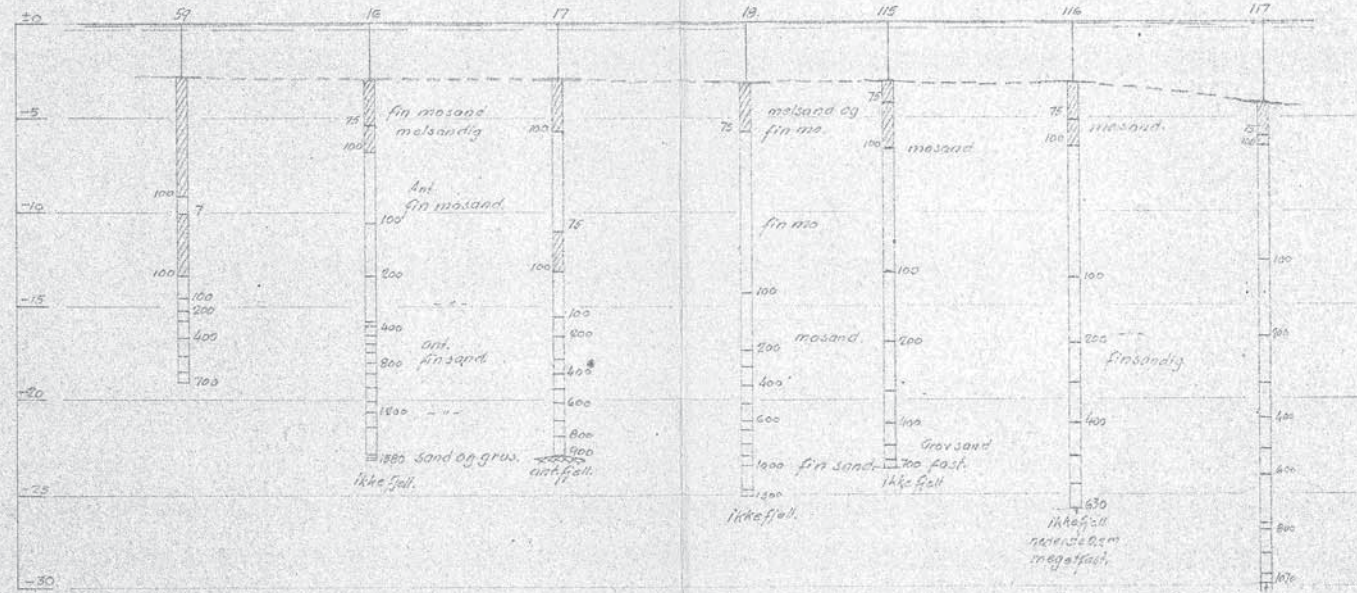 ±0
59
16
17
18.
115
116
117
-5
-10
-15
-20
-25
-30
100
7
100
100
200
400
700
75
100
fin mosand
melsandig
Ant.
fin mosand.
100
200
- " -
400
800
ant.
finsand.
1200
- " -
1580 sand og grus.
ikke fjell.
100
75
100
100
200
400
600
800
900
ant. fjell.
melsand og
fin mo.
75
fin mo
100
mosand.
200
400
600
1000
fin sand.
1300
ikke fjell.
75
100
mosand
100
200
400
Grovsand
700 fast.
ikke fjell
75
100
mosand.
100
200
finsandig
400
630
ikke fjell
nederste
meget fast.
75
100
100
200
400
600
800
1070